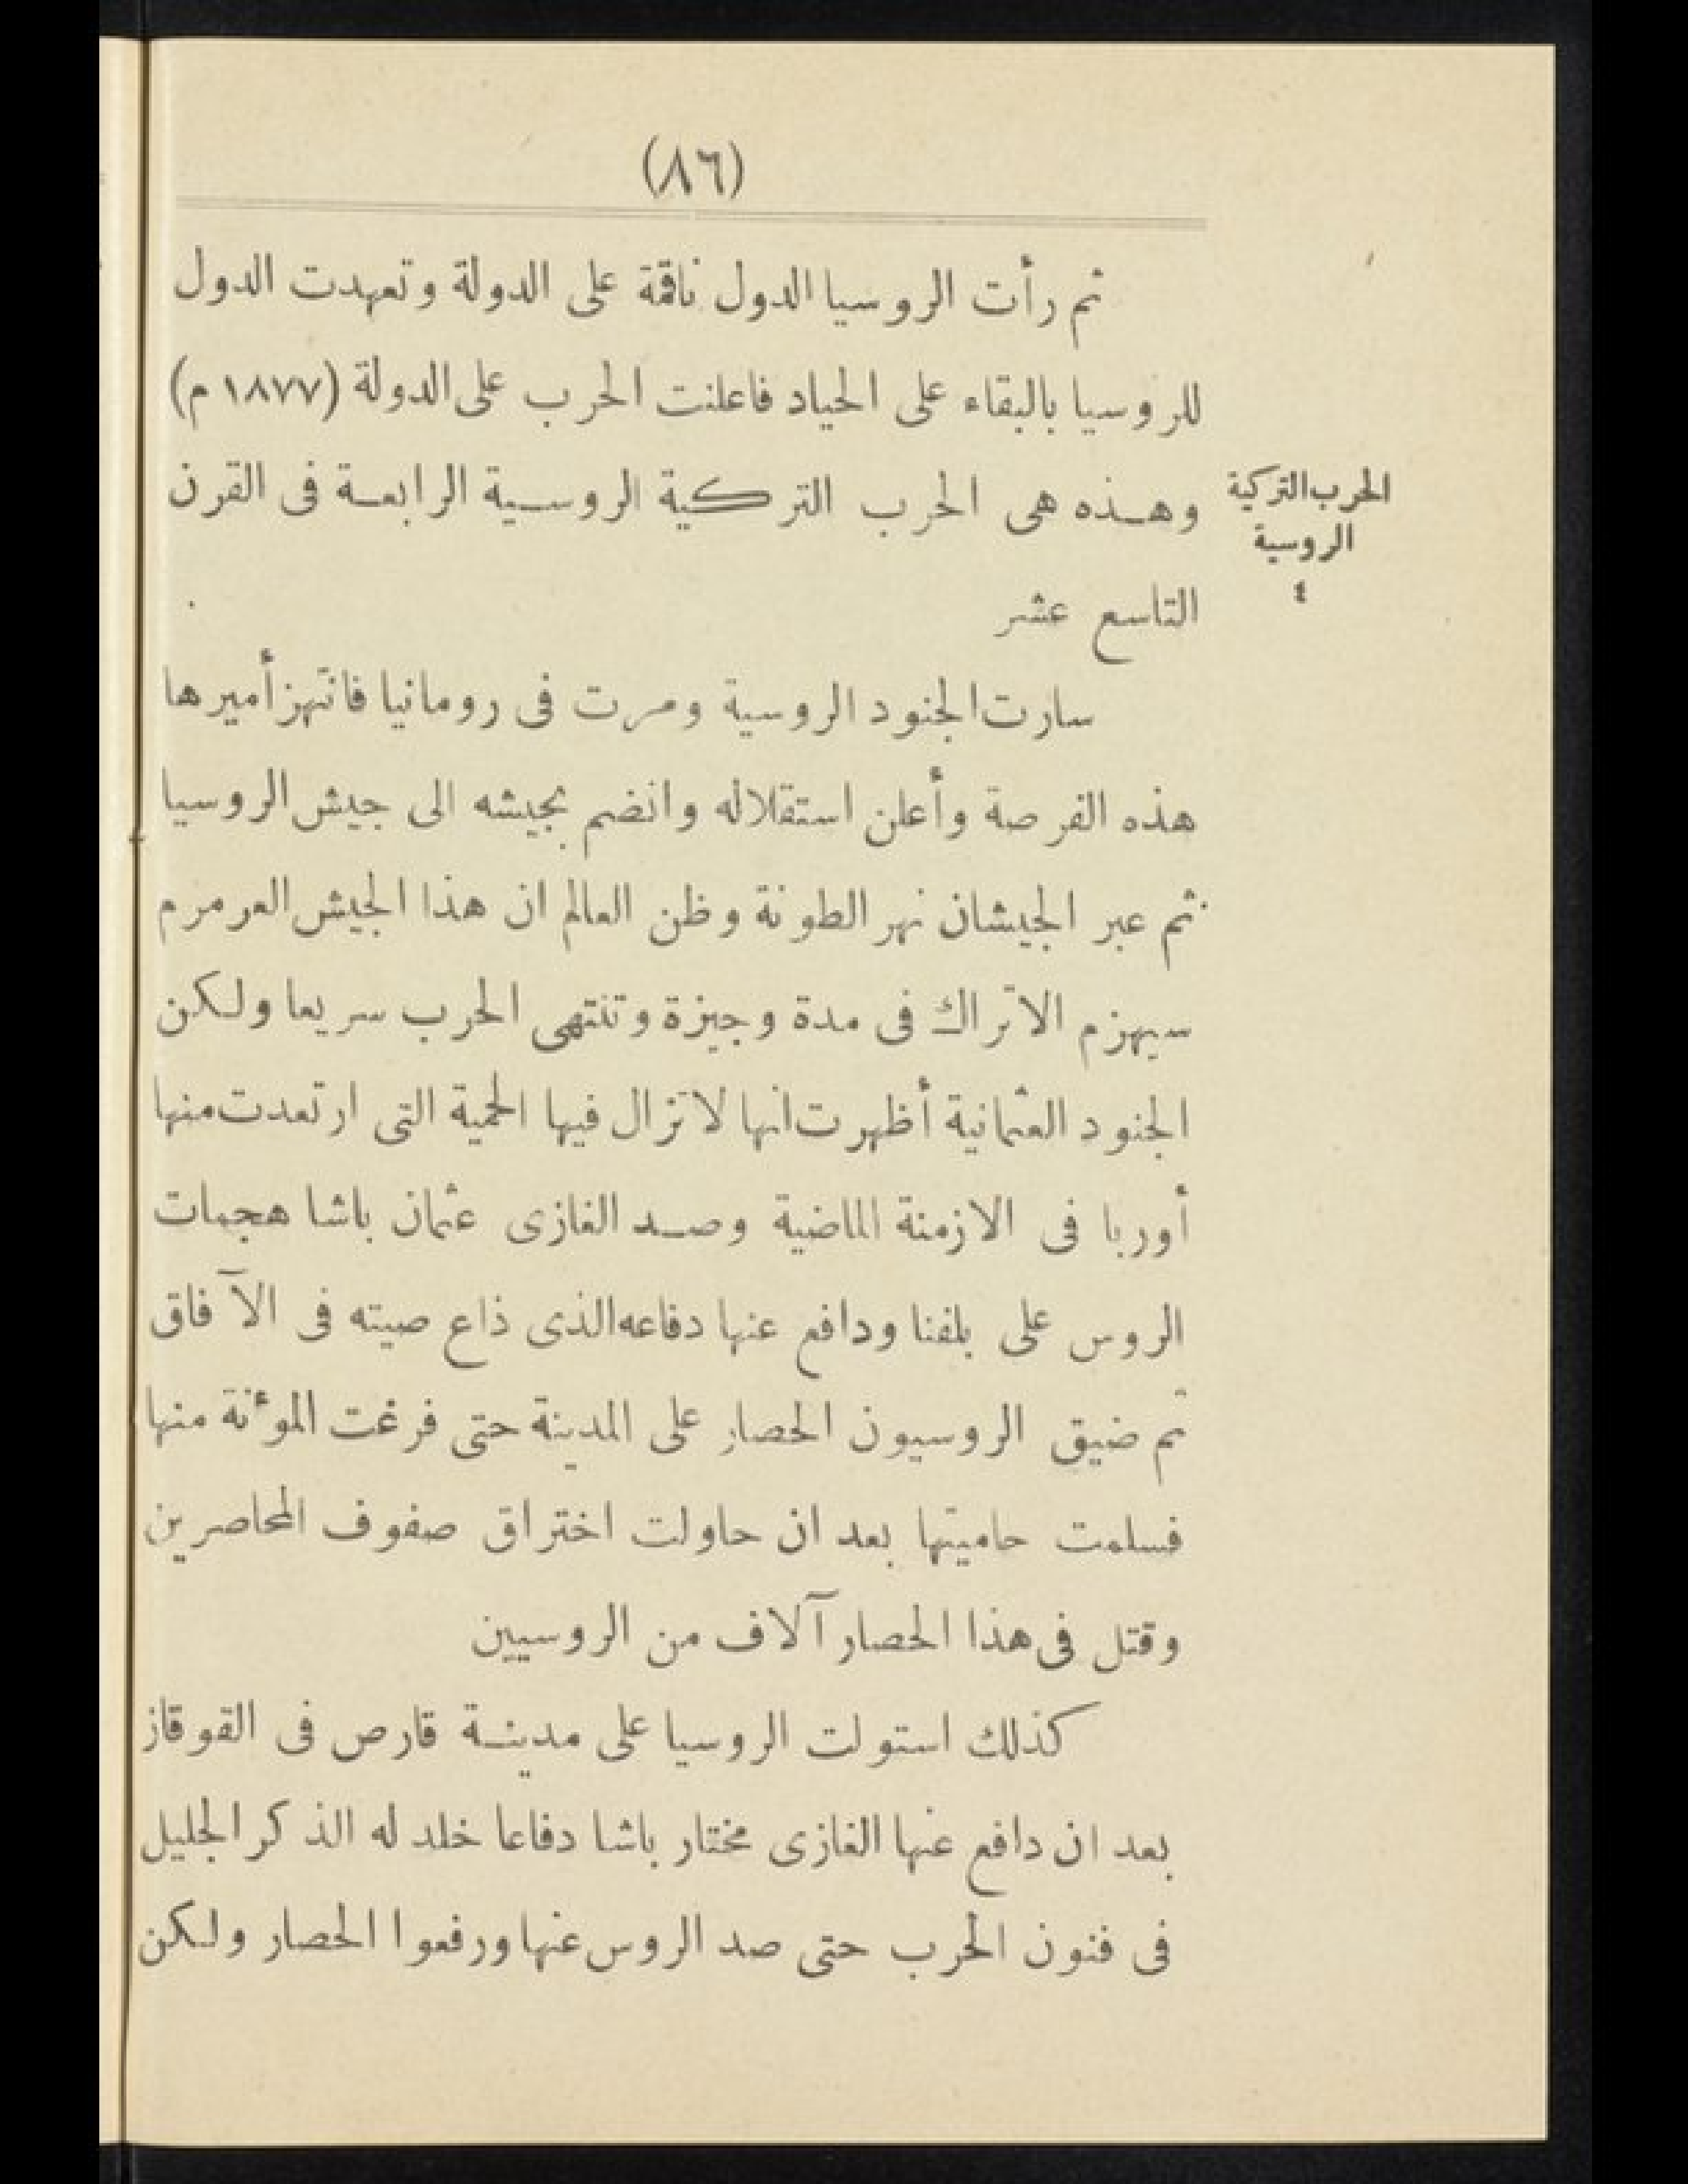 (٨٦)
ثم رأت الروسيا الدول ناقمة على الدولة وتعهدت الدول
للروسيا بالبقاء على الحياد فاعلنت الحرب على الدولة (١٨٧٧ م)
وهذه هى الحرب التركية الروسية الرابعة فى القرن
الحرب التركية
الروسية
٤
التاسع عشر
سارت الجنود الروسية ومرت فى رومانيا فانتهز أميرها
هذه الفرصة وأعلن استقلاله وانضم بجيشه الى جيش الروسيا
ثم عبر الجيشان نهر الطونة وظن العالم ان هذا الجيش العرمرم
سيهزم الاتراك فى مدة وجيزة وتنتهى الحرب سريعا ولكن
الجنود العثمانية أظهرت انها لا تزال فيها الحمية التى ارتعدت منها
أوربا فى الازمنة الماضية وصد الغازى عثمان باشا هجمات
الروس على بلفنا ودافع عنها دفاعه الذى ذاع صيته فى الآفاق
ثم ضيق الروسيون الحصار على المدينة حتى فرغت الموءنة منها
فسلمت حاميتها بعد ان حاولت اختراق صفوف المحاصرين
وقتل فى هذا الحصار آلاف من الروسيين
كذلك استولت الروسيا على مدينة قارص فى القوقاز
بعد ان دافع عنها الغازى مختار باشا دفاعا خلد له الذكر الجليل
فى فنون الحرب حتى صد الروس عنها ورفعوا الحصار ولكن